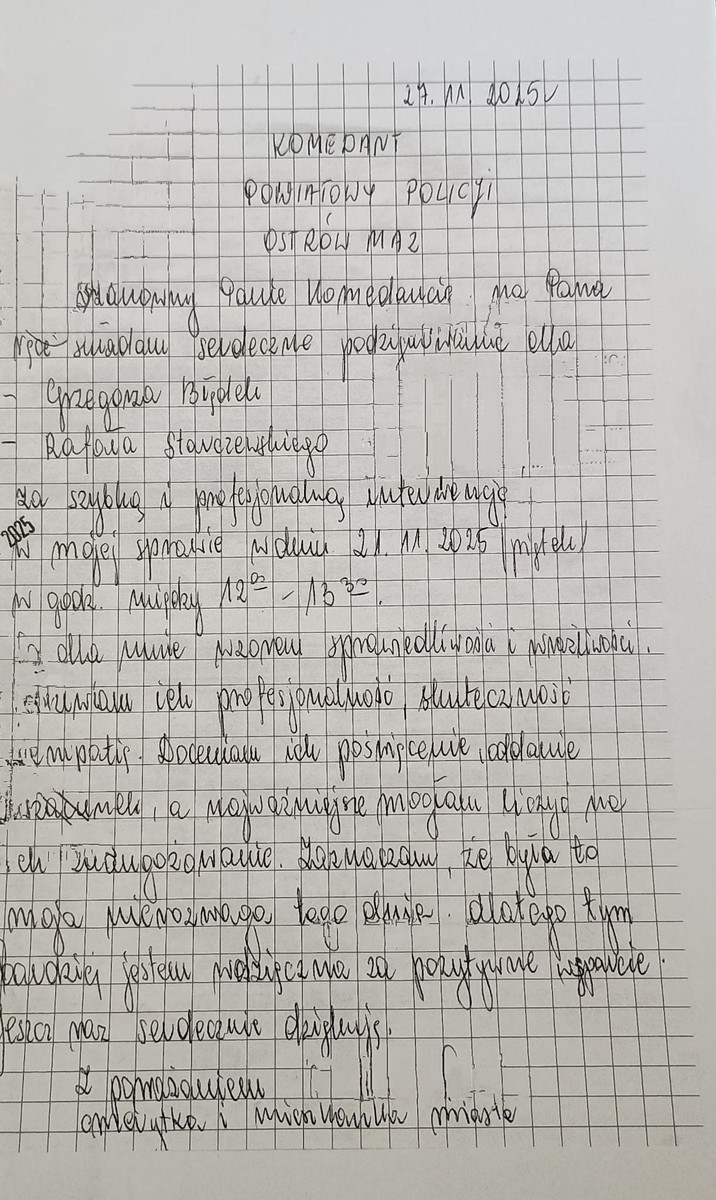 27. 11 2025r
KOMEDANT
POWIATOWY POLICJI
OSTRÓW MAZ
Szanowny Panie Komędancie na Pana
ręce składam serdeczne podziękowanie dla
- Grzegorza Biędek
- Rafała Stawczewskiego
Za szybką i profesjonalną interwencję
2025
w mojej sprawie w dniu 21. 11. 2025 (piątek)
w godz. między 12⁰⁰ - 13³⁰.
dla mnie wzorem sprawiedliwości i wrażliwości.
ich profesjonalność, skuteczność
empatię. Doceniam ich poświęcenie, oddanie
szacunek, a najważniejsze mogłam liczyć na
ich zaangożowanie. Zaznaczam, że była to
moja nierozwaga tego dnia. dlatego tym
bardziej jestem wdzięczna za pozytywne wsparcie.
jeszcz raz serdecznie dziękuję.
Z poważaniem
emerytka i mieszkanka miasta